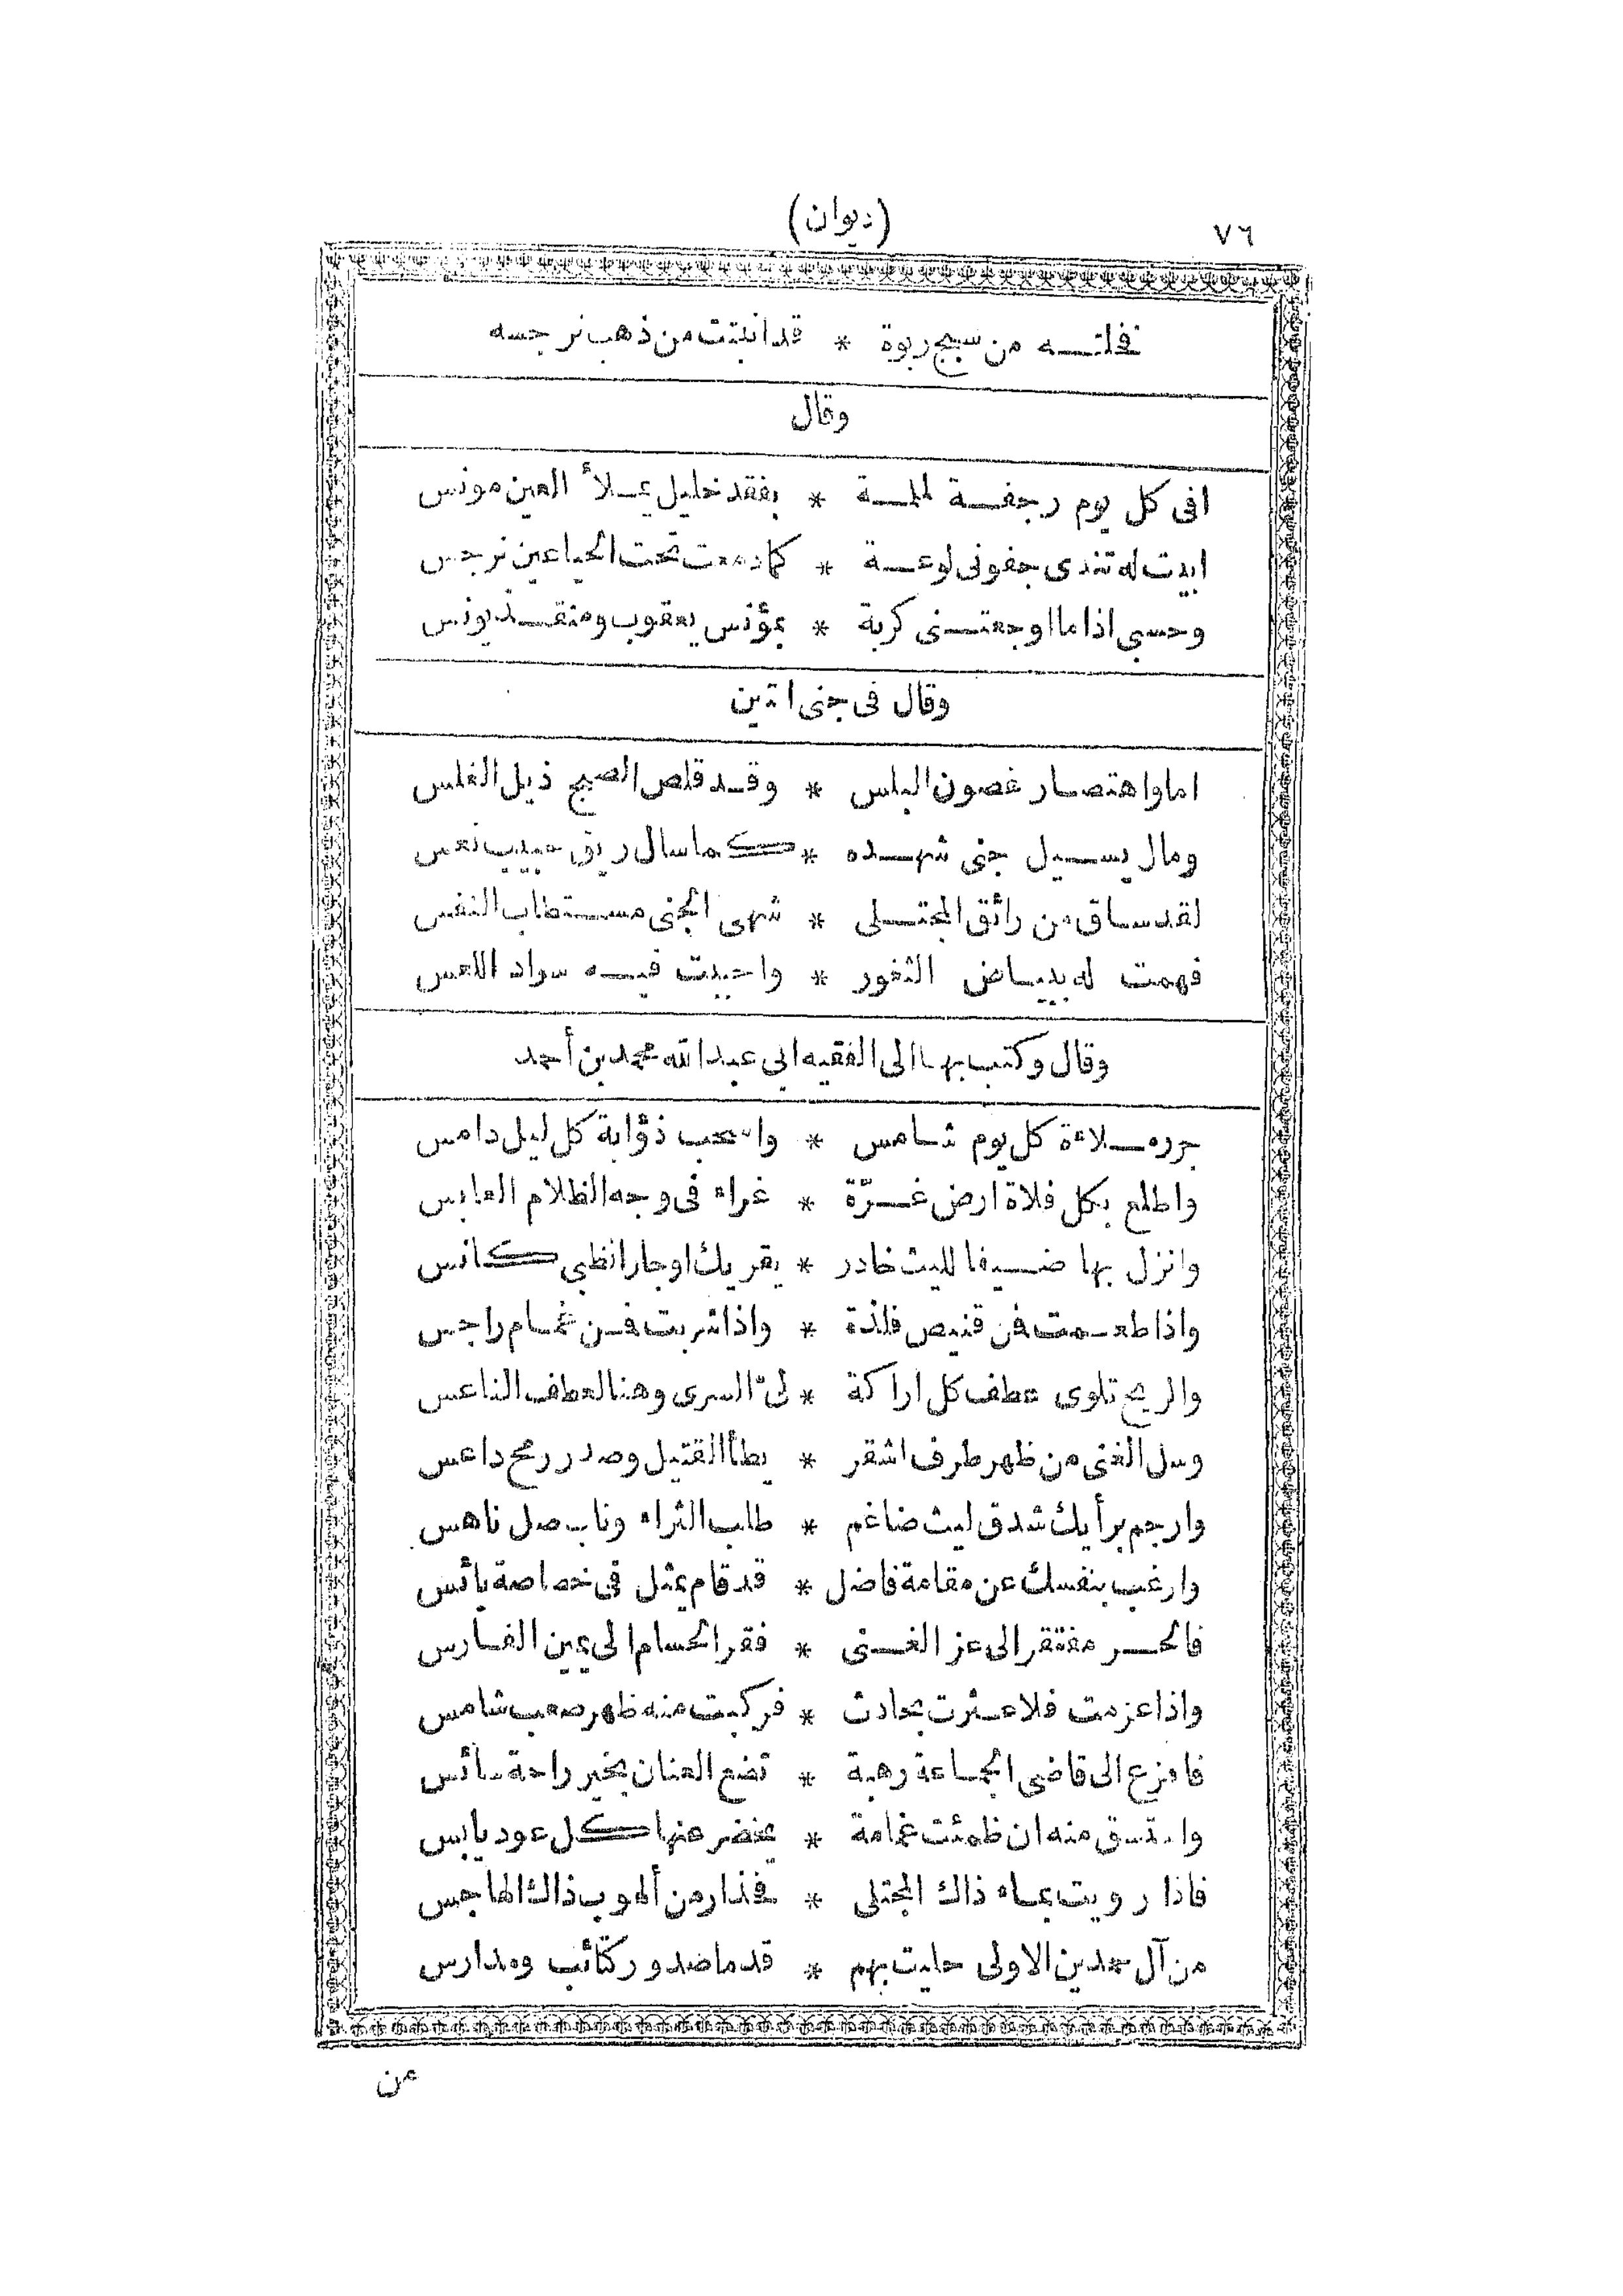 ٧٦
(ديوان)
فخلتـه من سبج ربوة * قد انبتت من ذهب نرجسه
وقال
افى كل يوم رجفـة لملمـة * بفقد خليل يمـلأ العين مونس
ابيت له تندى جفونى لوعـة * كما دمعت تحت الحيا عين نرجس
وحسبى اذا ما اوجعتـنى كربة * بمؤنس يعقوب ومنقـذ يونس
وقال فى جنى التين
اما واهتصـار غصون البلس * وقـد قلص الصبح ذيل الغلس
ومال يسـيل جنى شهـده * كما سال ريق حبيب نعس
لقد سـاق من رائق المجتـلى * شهى الجنى مسـتطاب النفس
فهمت له ببيـاض الثغور * واحببت فيـه سواد اللعس
وقال وكتب بها الى الفقيه ابى عبد الله محمد بن أحمد
جرر مـلاءة كل يوم شـامس * واسحب ذؤابة كل ليل دامس
واطلع بكل فلاة ارض غـرّة * غراء فى وجه الظلام العابس
وانزل بها ضـيفا لليث خادر * يقريك او جارا لظبى كانس
واذا طعـمت فمن قنيص فلذة * واذا شربت فـن غمـام راجس
والريح تلوى عطف كل اراكة * لىّ السرى وهنا لعطف الناعس
وسل الغنى من ظهر طرف اشقر * يطأ القتيل وصدر رمح داعس
وارجم برأيك شدق ليث ضاغم * طلب الثراء وناب صل ناهس
وارغب بنفسك عن مقامة فاضل * قد قام يمثل فى خصاصة بائس
فالحـر مفتقر الى عز الغـنى * فقر الحسام الى يمين الفـارس
واذا عزمت فلا عـثرت بحادث * فركبت منه ظهر صعب شامس
فافزع الى قاضى الجمـاعة رهبة * تضع العنان بخير راحة سائس
واستسق منه ان ظمئت غمامة * يخضر عنها كل عود يابس
فاذا رويت بمـاء ذاك المجتلى * فخذار من ألهوب ذاك الهاجس
من آل حمدين الاولى حليت بهم * قدما صدور كتائب ومدارس
عن